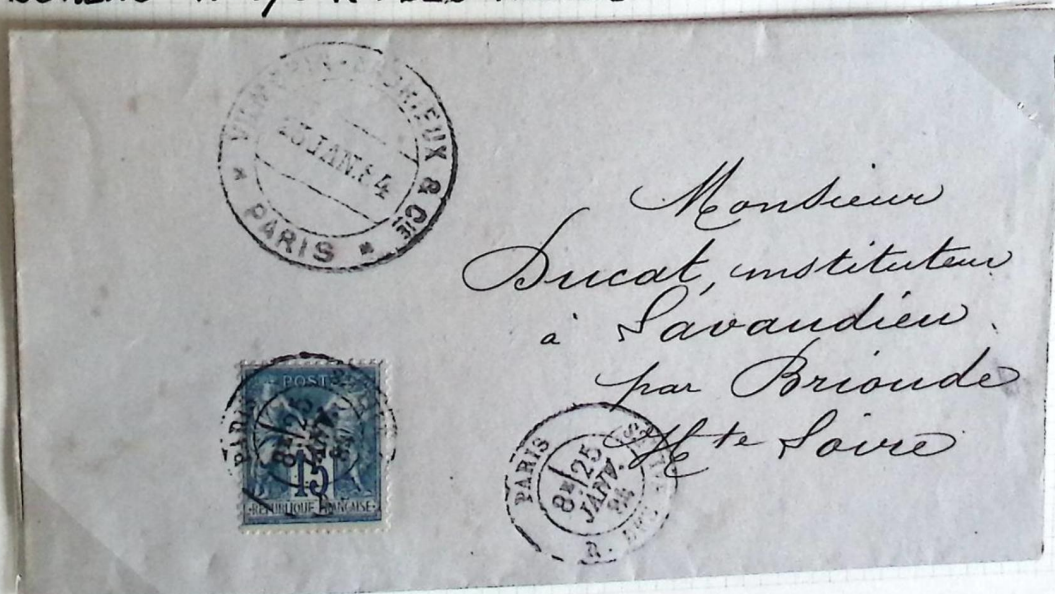 & Cie
25 JAN. 84
* PARIS *
Monsieur
Ducat, instituteur
à Lavaudieu
par Brioude
Hte Loire
POSTES
15
REPUBLIQUE FRANÇAISE
PARIS
8E/25
JANV.
84
PARIS
8E/25
JANV.
84
R.